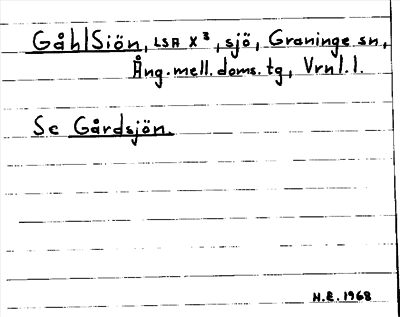 Gåhl Siön, LSA X³, sjö, Graninge sn,
Ång. mell. doms. tg, Vrnl. l.
Se Gårdsjön.
H.E. 1968